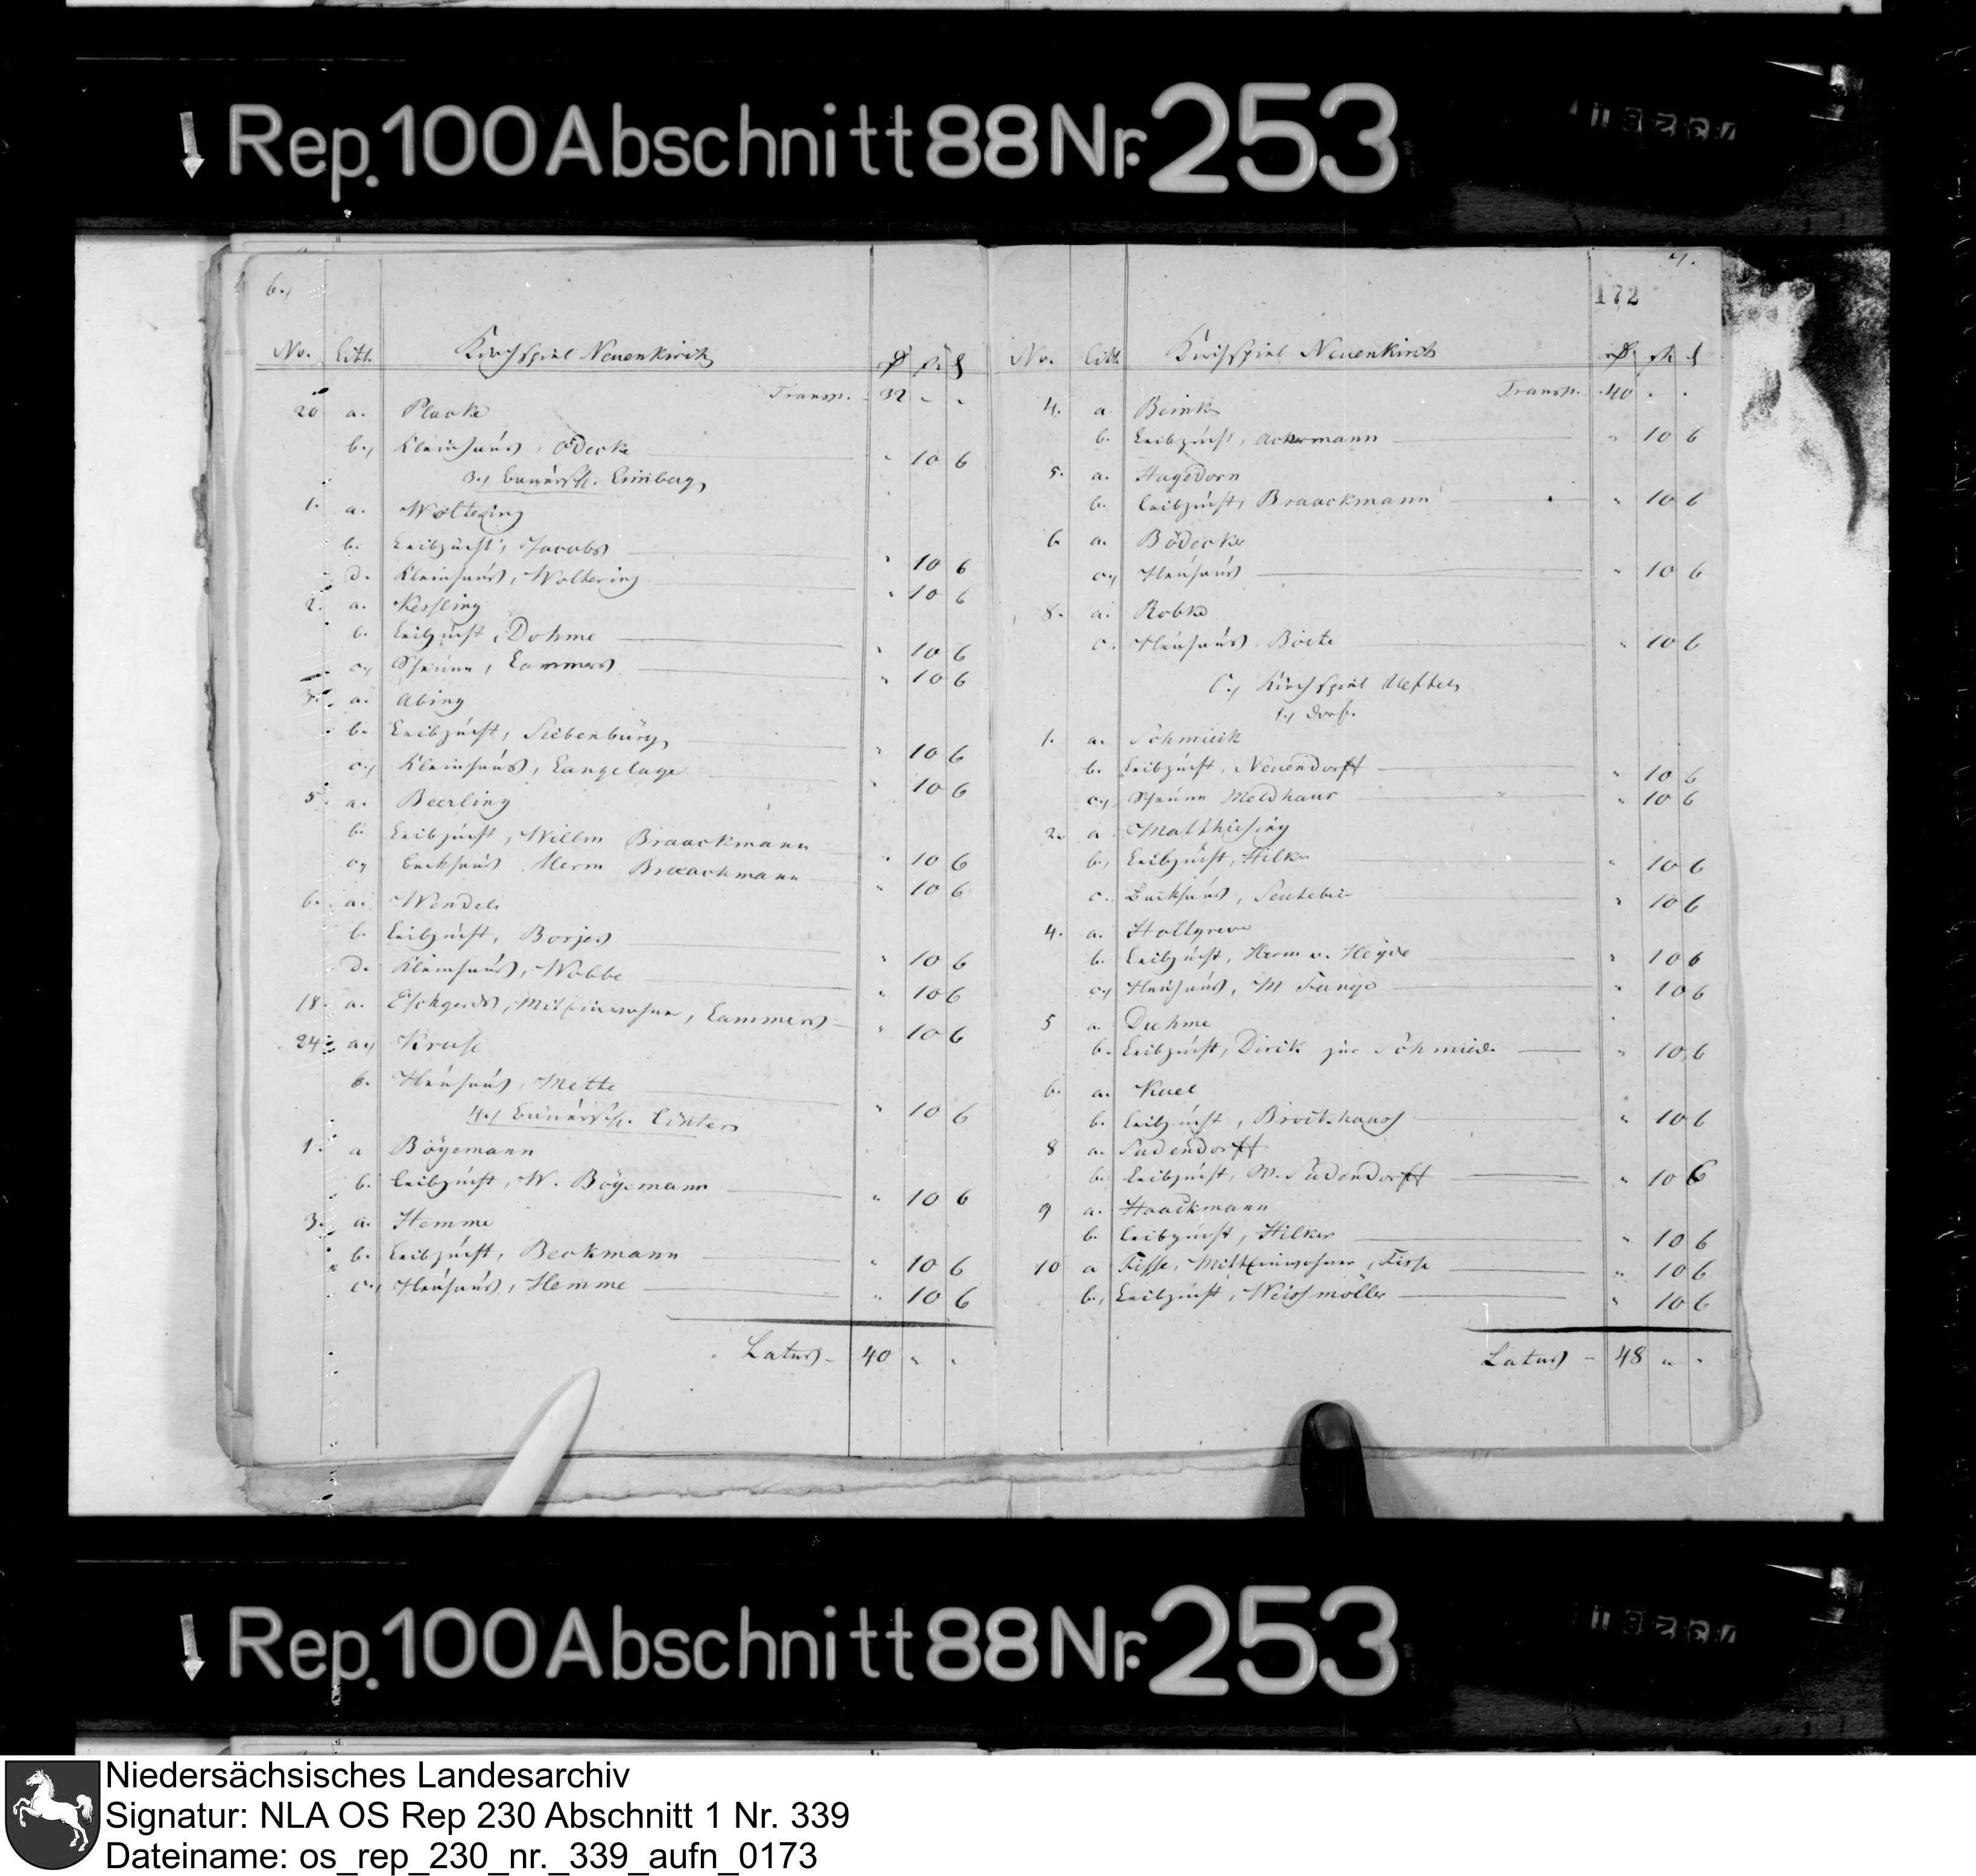 Rep. 100 Abschnitt 88 Nr. 253
6.,
No. Litt. Kirchspiel Neuenkirch
Transp. 32 - -
20 a. Placke
b., Kleinhaus, Ödecke " 10 6
3., Bauersch. Limberg,
1. a. Woltering
b. Leibzucht, Jacobs " 10 6
d. Kleinhaus, Woltering " 10 6
2. a. Kessling
b. Leibzucht, Dohme " 10 6
c., Scheune, Lammers " 10 6
3. a. Abing
b. Leibzucht, Siebenbürg, " 10 6
c., Kleinhaus, Langelage " 10 6
5. a. Beerling
b. Leibzucht, Willm Braackmann " 10 6
c, Backhaus Herm Braackmann " 10 6
6. a. Wendel
b. Leibzucht, Borjes " 10 6
d. Kleinhaus, Wobbe " 10 6
18. a. Eschgerds, Miteinwohner, Lammers " 10 6
24. a., Kruse
b. Heuhaus, Mette " 10 6
4., Bauersch. Linter
1. a Böyemann
b. Leibzucht, W. Böyemann " 10 6
3. a. Hemme
b. Leibzucht, Beckmann " 10 6
c., Heuhaus, Hemme " 10 6
Latus - 40 " "
7.
172
No. Litt. Kirchspiel Neuenkirch
Transp. 40 . .
4. a. Beink
b. Leibzucht, Ackermann " 10 6
5. a. Hagedorn
b. Leibzucht, Braackmann " 10 6
6 a. Bödecker
c., Heuhaus " 10 6
8. a. Robke
c. Heuhaus, Boite " 10 6
C., Kirchspiel Ueffeln
1., Dorf.
1. a. Schmidt
b. Leibzucht, Neuendorff " 10 6
c., Scheune Meldhaus " 10 6
2. a. Matthiesing
b., Leibzucht, Hilker " 10 6
c. Backhaus, " 10 6
4. a. Hallgreve
b. Leibzucht, Herm v. Heyde " 10 6
c, Heuhaus, M Funge " 10 6
5 a. Duhme
b. Leibzucht, Dirik zur Schmiede " 10 6
6. a. Kuel
b. Leibzucht, Broithaus " 10 6
8 a. Sudendorff
b. Leibzucht, W. Sudendorff " 10 6
9 a. Haackmann
b. Leibzucht, Hilker " 10 6
10 a Fisse, Miteinwohner, Fisse " 10 6
b., Leibzucht, Weissmöller " 10 6
Latus - 48 " "
Rep. 100 Abschnitt 88 Nr. 253
Niedersächsisches Landesarchiv
Signatur: NLA OS Rep 230 Abschnitt 1 Nr. 339
Dateiname: os_rep_230_nr._339_aufn_0173